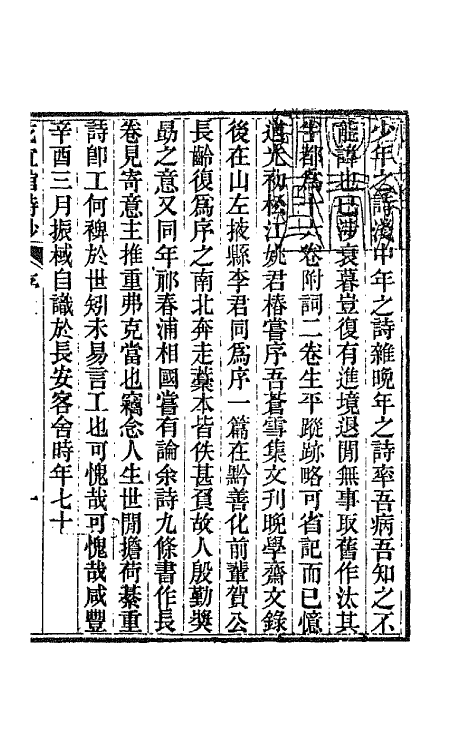 少年之詩淺中年之詩雜晚年之詩率吾病吾知之不
能諱也已涉衰暮豈復有進境退閒無事取舊作汰其
半都為十六卷附詞二卷生平蹤跡略可省記而已憶
道光初松江姚君椿嘗序吾蒼雪集文刊晚學齋文錄
後在山左掖縣李君同為序一篇在黔善化前輩賀公
長齡復為序之南北奔走藁本皆佚甚負故人殷勤獎
勗之意又同年祁春浦相國嘗有論余詩九條書作長
卷見寄意主推重弗克當也竊念人生世間擔荷綦重
詩卽工何裨於世矧未易言工也可愧哉可愧哉咸豐
辛酉三月振棫自識於長安客舍時年七十
花宜館詩鈔 序